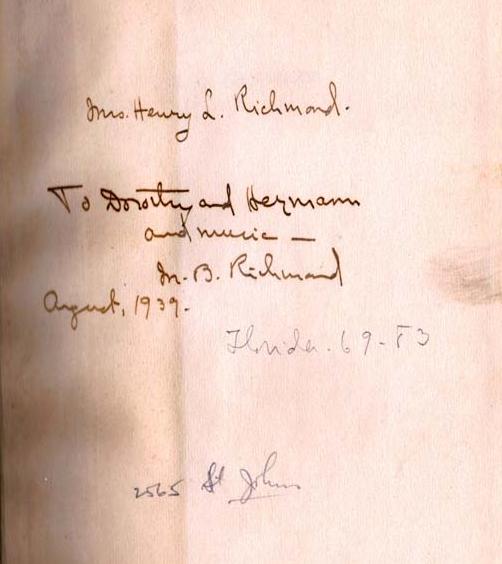 Mrs. Henry L. Richmond.
To Dorothy and Hermann
and music —
M. B. Richmond
August, 1939.
Florida. 69-F3
2565 St Johns